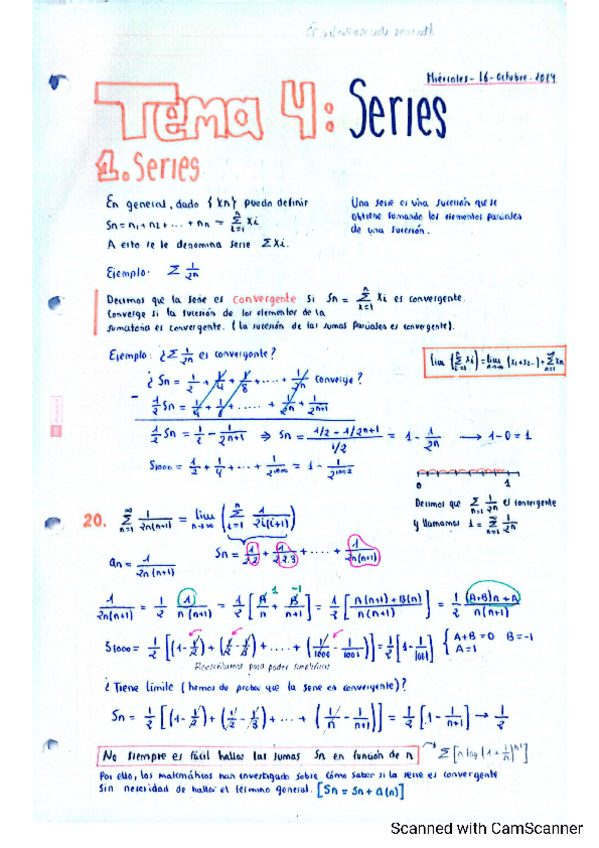 Miércoles - 16 - Octubre - 2019
Tema 4: Series
1. Series
En general, dado {xn} puedo definir
Sn = n1 + n2 + ... + nn = Σ xi
A esto se le denomina serie Σxi.
Una serie es una sucesión que se
obtiene sumando los elementos parciales
de una sucesión.
Ejemplo: Σ 1/2n
Decimos que la serie es convergente si Sn = Σ xi es convergente.
Converge si la sucesión de los elementos de la
sumatoria es convergente. (la sucesión de las sumas parciales es convergente).
Ejemplo: ¿Σ 1/2n es convergente?
¿ Sn = 1/2 + 1/4 + 1/8 + .... + 1/2n converge?
1/2 Sn = 1/4 + 1/8 + ..... + 1/2n + 1/2n+1
1/2 Sn = 1/2 - 1/2n+1 ⇒ Sn = 1/2 - 1/2n+1 / 1/2 = 1 - 1/2n → 1-0 = 1
S1000 = 1/2 + 1/4 + ... + 1/21000 = 1 -
0 1
Decimos que Σ 1/2n es convergente
y llamamos 1 = Σ 1/2n
20. Σ 1/2n(n+1) = lim n→∞ (Σ 1/2i(i+1))
an = 1/2n(n+1)
Sn = 1/2.2 + 1/2.2.3 + .... + 1/2n(n+1)
1/2n(n+1) = 1/2 1/n(n+1) = 1/2 [A/n + B/n+1] = 1/2 [A(n+1) + B(n) / n(n+1)] = 1/2 (A+B)n + A / n(n+1)
S1000 = 1/2 [(1 - 1/2) + (1/2 - 1/3) + .... + (1/1000 - 1/1001)] = 1/2 [1 - 1/1001] { A+B = 0 B = -1
A = 1
¿Tiene límite (hemos de probar que la serie es convergente)?
Sn = 1/2 [(1 - 1/2) + (1/2 - 1/3) + ... + (1/n - 1/n+1)] = 1/2 [1 - 1/n+1] → 1/2
No siempre es fácil hallar las sumas Sn en función de n
Por ello, los matemáticos han investigado sobre cómo saber si la serie es convergente
sin necesidad de hallar el término general. [Sn = Sn + a(n)]
Scanned with CamScanner